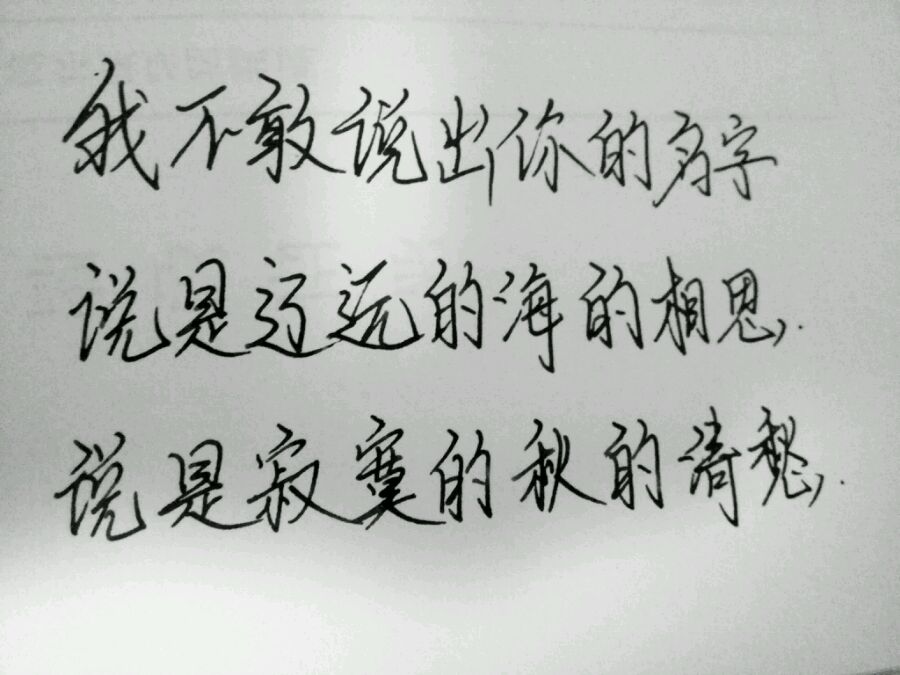 我不敢说出你的名字
说是辽远的海的相思.
说是寂寞的秋的清愁.